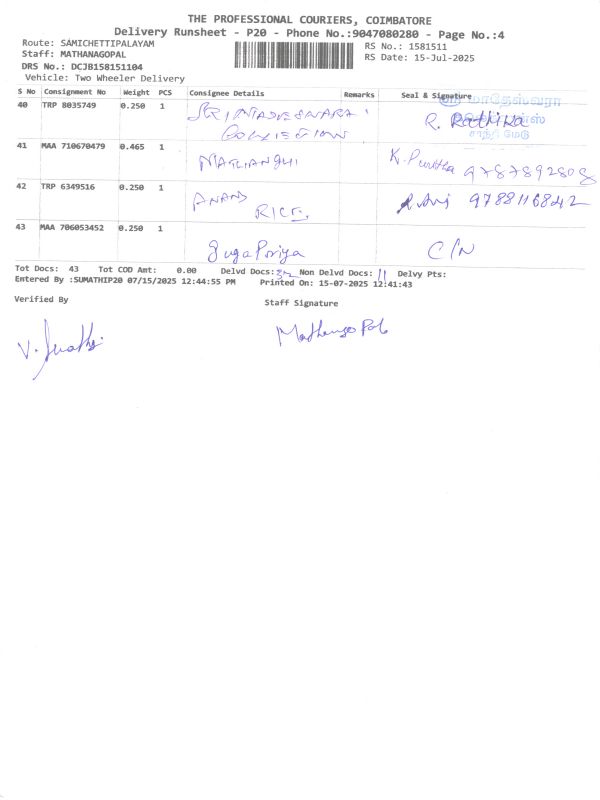 THE PROFESSIONAL COURIERS, COIMBATORE
Delivery Runsheet - P20 - Phone No.:9047080280 - Page No.:4
Route: SAMICHETTIPALAYAM
RS No.: 1581511
Staff: MATHANAGOPAL
RS Date: 15-Jul-2025
DRS No.: DCJB158151104
Vehicle: Two Wheeler Delivery
S No Consignment No Weight PCS Consignee Details Remarks Seal & Signature
ஸ்ரீ மாதேஸ்வரா
40 TRP 8035749 0.250 1 SRI MADESWARA R. Rathika
சாந்தி மேடு
41 MAA 710670479 0.465 1 K. 9787892808
42 TRP 6349516 0.250 1 ANAND 9788116842
RICE
43 MAA 706053452 0.250 1 SugaPriya C/N
Tot Docs: 43 Tot COD Amt: 0.00 Delvd Docs: 32 Non Delvd Docs: 11 Delvy Pts:
Entered By :SUMATHIP20 07/15/2025 12:44:55 PM Printed On: 15-07-2025 12:41:43
Verified By
Staff Signature